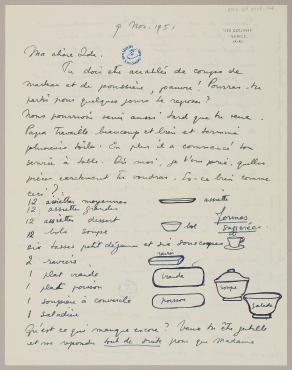 9 Nov. 1951
VENCE
(A.M.)
Ma chère Ida.
Tu dois être accablée de coups de
marteau et de poussière, pauvre! Pourras-tu
partir pour quelques jours te reposer?
Nous pourrons venir aussi tard que tu veux.
Papa travaille beaucoup et bien et terminé
plusieurs toiles. En plus il a commencé ton
service à table. Dis moi, je t'en prie, quelles
pièces exactement tu voudras. Est-ce bien comme
ceci?:
12 assiettes moyennes
assiette
12 assiettes grandes
12 assiettes dessert
formes
12 bols soupe
bol
six tasses petit déjeuner et six soucoupes
2 raviers
ravier
1 plat viande
viande
1 plat poisson
poisson
1 soupière à couvercle
soupe
1 saladier
salade
Qu'est ce qui manque encore? Veux tu être gentille
et me répondre tout de suite pour que Madame